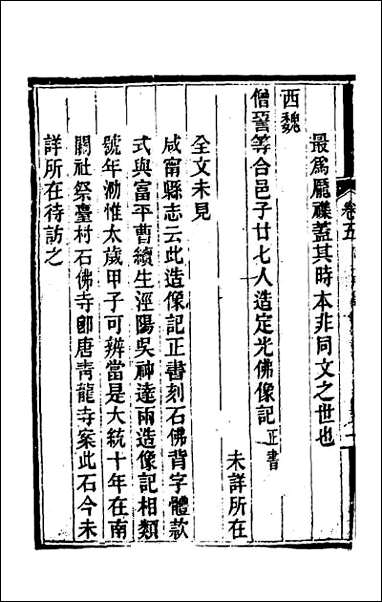 最爲龎襍蓋其時本非同文之世也
西魏
僧詧等合邑子廿七人造定光佛像記正書
未詳所在
全文未見
咸甯縣志云此造像記正書刻石佛背字體款
式與富平曹續生涇陽吳神達兩造像記相類
號年泐惟太歲甲子可辨當是大統十年在南
關社祭臺村石佛寺卽唐靑龍寺案此石今未
詳所在待訪之
卷五